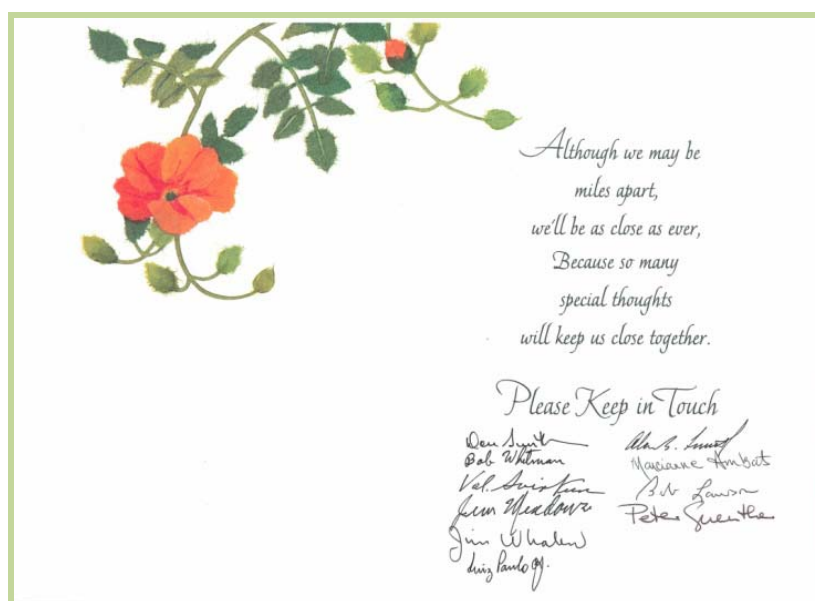 Although we may be
miles apart,
we'll be as close as ever,
Because so many
special thoughts
will keep us close together.
Please Keep in Touch
Don Smith
Bob Whitman
Val
Jim Meadows
Jim Whalen
Luiz Paulo
Alan B.
Marianne Ambat
Bob Lawson
Peter Guenther